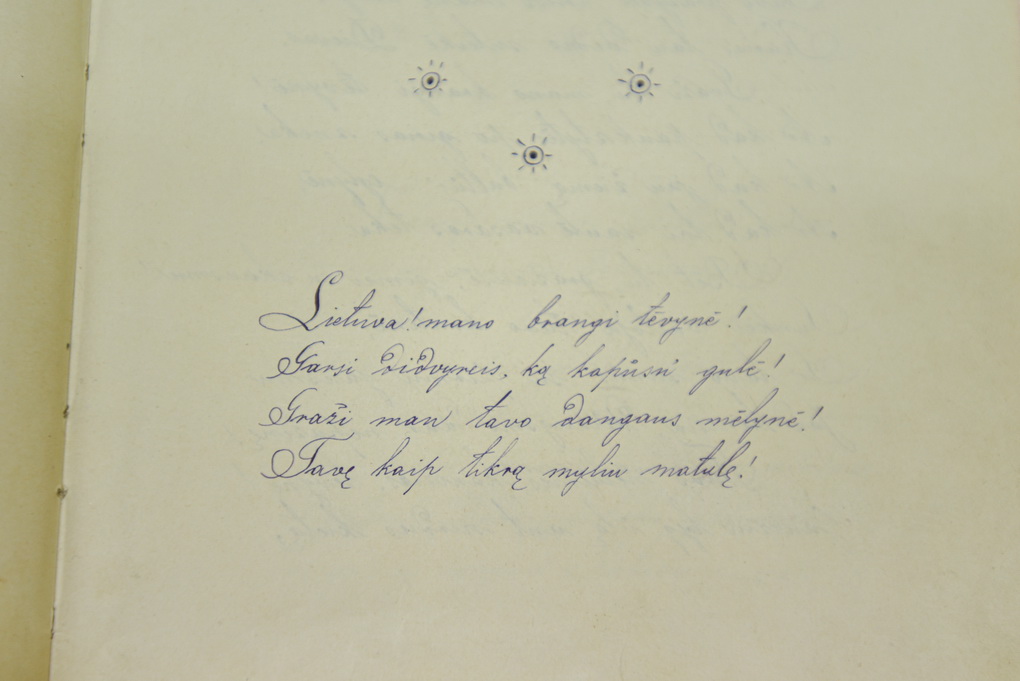 Lietuva! mano brangi tėvynė!
Garsi didvyreis, ką kapūsu gulė!
Graži man tavo dangaus mėlynė!
Tavę kaip tikrą myliu matulę!